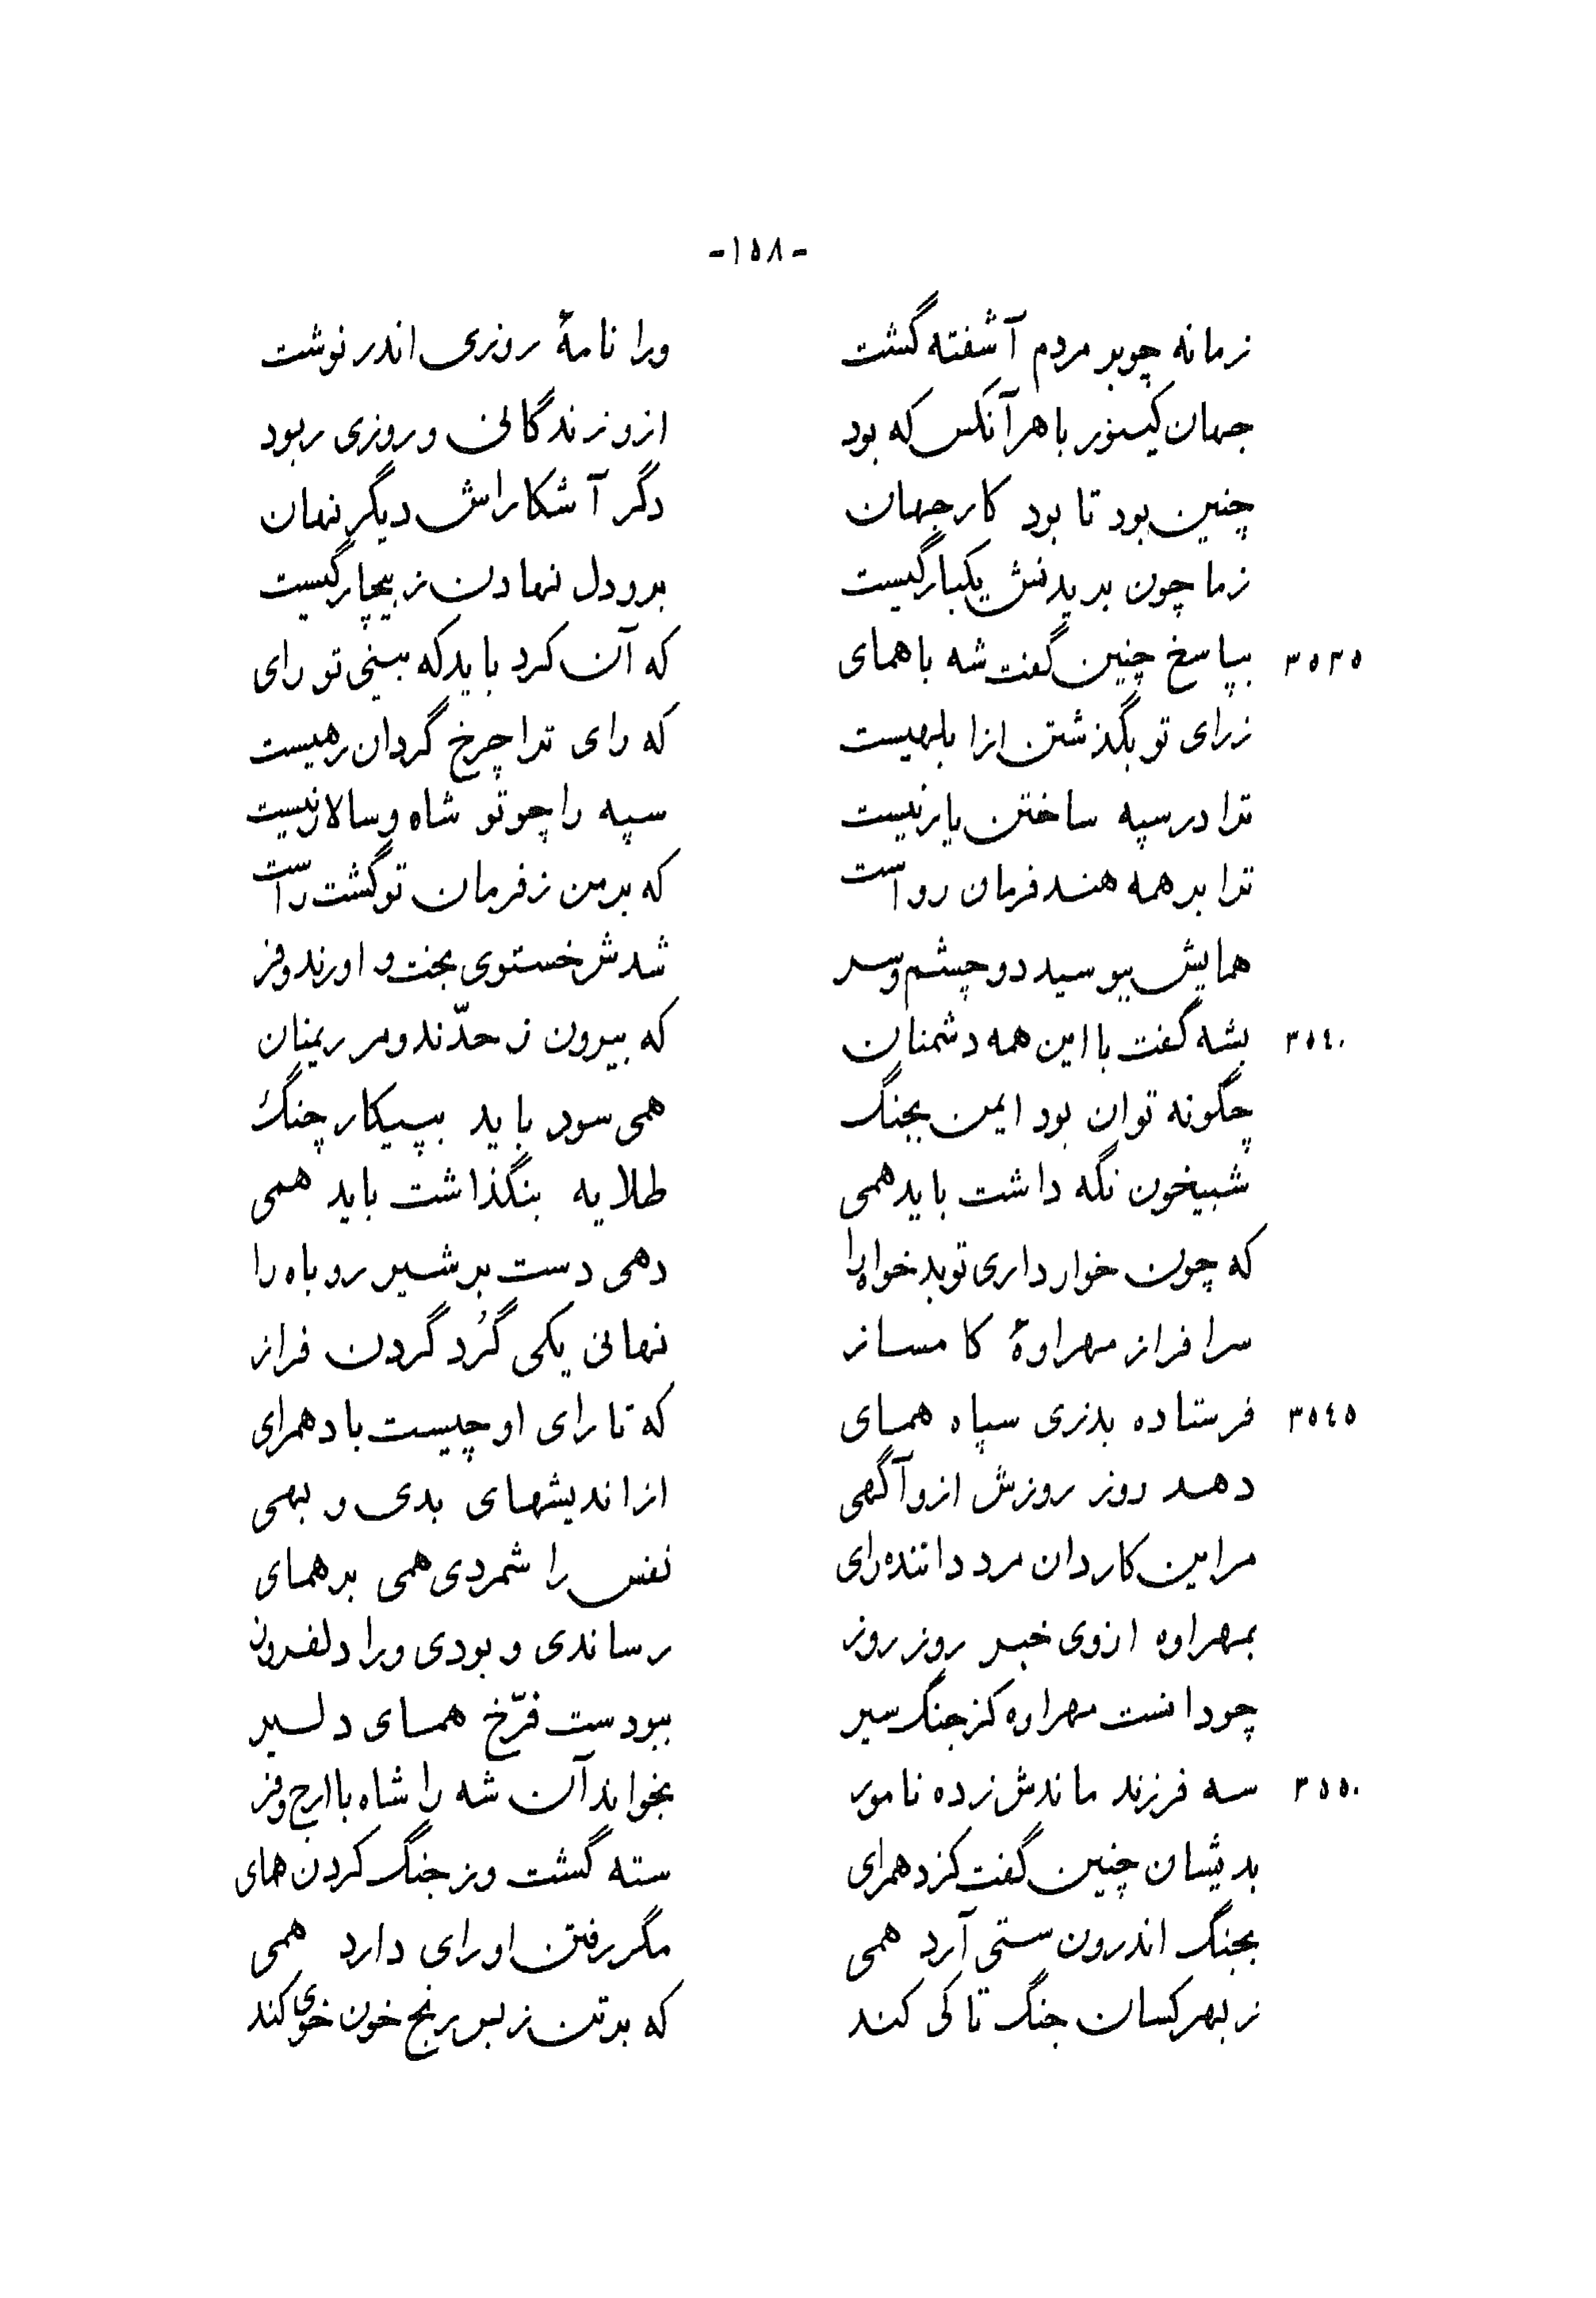 -۱۵۸-
زمانه چو بر مردم آشفته گشت ورا نامهٔ روزی اندر نوشت
جهان کینور با هر آنکس که بود ازو زندگانی و روزی ربود
چنین بود تا بود کار جهان دگر آشکاراش دیگر نهان
زما چون بریدنش یکبارگیست برو دل نهادن ز بیچارگیست
۳۵۳۵ بپاسخ چنین گفت شه با همای که آن کرد باید که بینی تو رای
ز رای تو بگذشتن از ابلهیست که رای ترا چرخ گردان رهیست
ترا در سپه ساختن یار نیست سپه را چو تو شاه و سالار نیست
ترا بر همه هند فرمان رواست که بر من ز فرمان تو گشت راست
همایش ببوسید دو چشم و سر شدش خستوی بخت و اورند و فر
۳۵۴۰ بشه گفت با این همه دشمنان که بیرون ز حدّند و مر ریمنان
چگونه توان بود ایمن بجنگ همی سود باید بپیکار چنگ
شبیخون نگه داشت باید همی طلایه بنگذاشت باید همی
که چون خوار داری تو بدخواه را دهی دست بر شیر روباه را
سرافراز مهراوهٔ کامساز نهانی یکی گُرد گردن فراز
۳۵۴۵ فرستاده بد زی سپاه همای که تا رای او چیست با دهمرای
دهد روز روزش ازو آگهی از اندیشهای بدی و بهی
مر این کاردان مرد داننده رای نفس را شمردی همی بر همای
بمهراوه ازوی خبر روز روز رساندی و بودی ورا دلفروز
چو دانست مهراوه کز جنگ سیر ببودست فرّخ همای دلیر
۳۵۵۰ سه فرزند ماندش زده نامور بخواند آن شه را شاه با ارج و فر
بدیشان چنین گفت کز دهمرای سته گشت وز جنگ کردن همای
بجنگ اندرون سستی آرد همی مگر رفتن او رای دارد همی
ز بهر کسان جنگ تا کی کند که بر تن ز بس رنج خون خوی کند